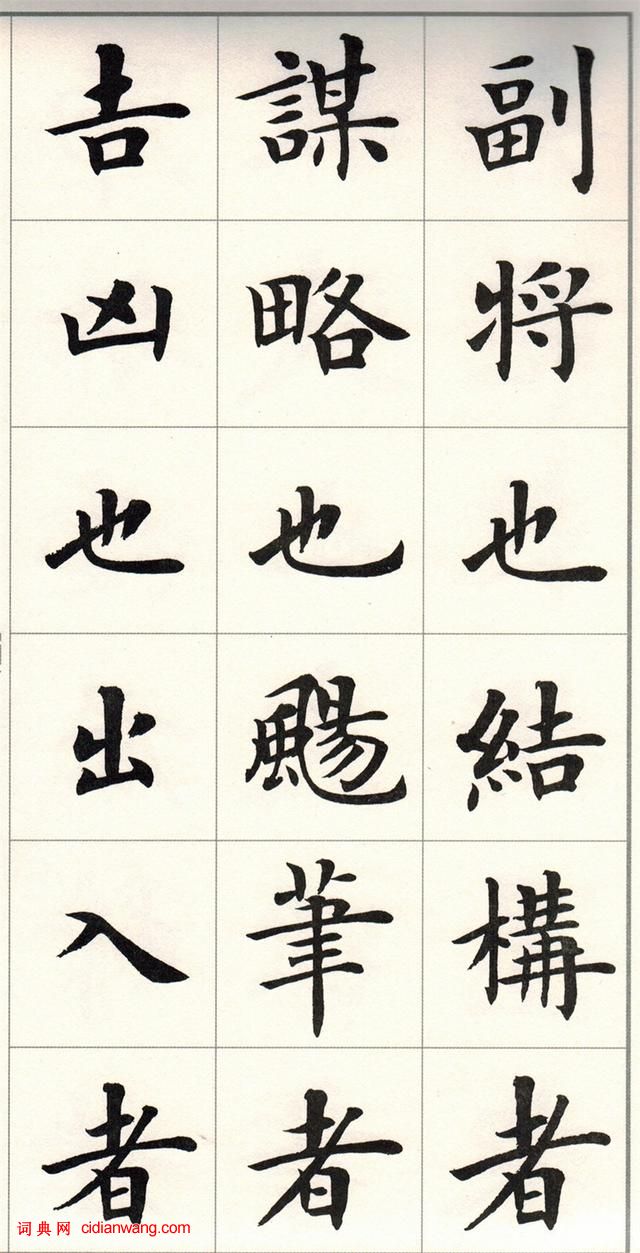 副将也結構者
謀略也颺筆者
吉凶也出入者
词典网 cidianwang.com